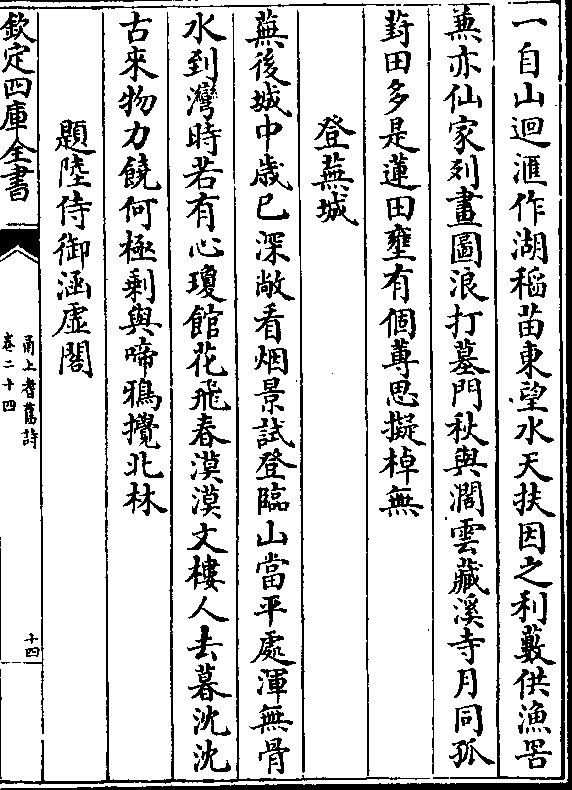 一自山迴滙作湖稻苗東望水天扶因之利藪供漁罟
兼亦仙家列畫圖浪打墓門秋與濶雲藏溪寺月同孤
葑田多是蓮田壅有個蓴思擬棹無
登蕪城
蕪後城中歳已深敞看烟景試登臨山當平處渾無骨
水到灣時若有心瓊館花飛春漠漠文樓人去暮沈沈
古來物力饒何極剩與啼鴉攪北林
題陸侍御涵虛閣
欽定四庫全書
甬上耆舊詩
卷二十四
十四